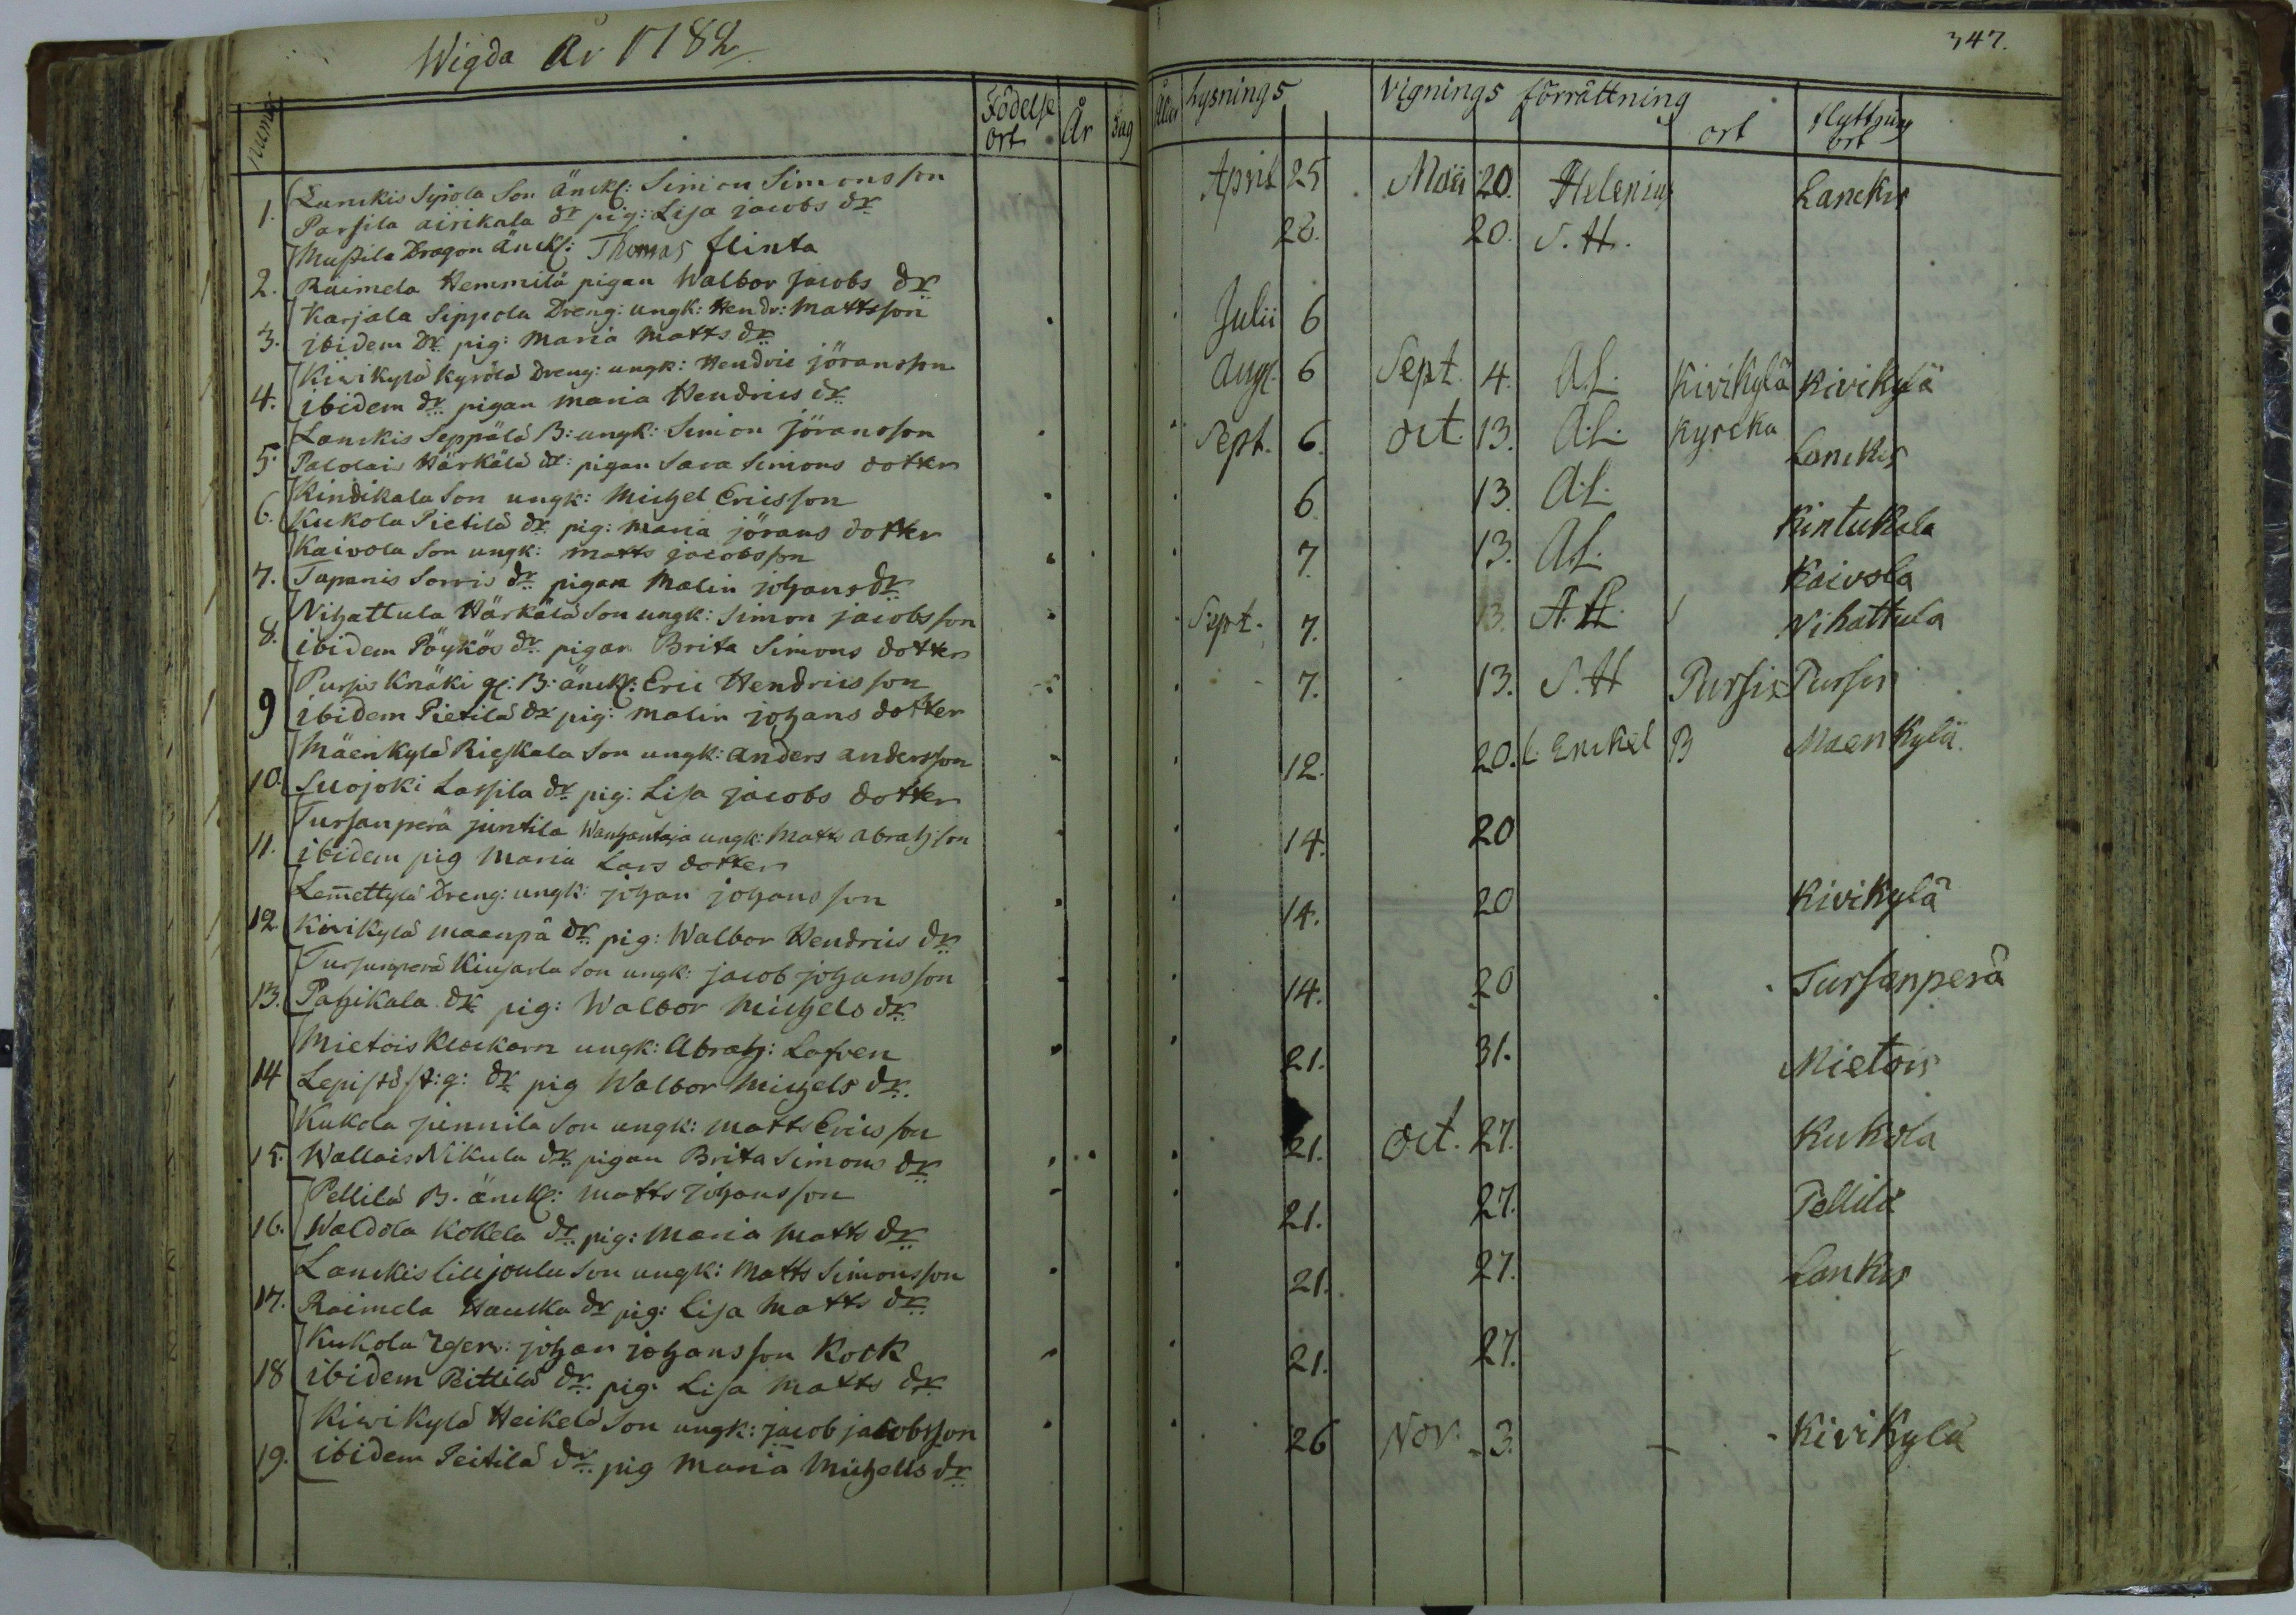 Wigda År 1782
347.
Numer Födelse ort År Dag Ålder Lysnings Vignings förrättning ort flyttnings ort
1. Lanckis Sipola Son änckl: Simon Simonsson April 25 Maii 20. Helenius Lanckis
Parsila airikala dr pig: Lisa jacobs dr
Mussila Dragon änckl: Thomas flinta 28. 20. S. H.
2. Raimela Hemmilä pigan Walbor Jacobs dr
Karjala Seppola Dreng: ungk: Hendr: Mattsson Julii 6
3. ibidem Dr pig: Maria Matts dr
Kivikylä Kyrölä Dreng: ungk: Hendric jöransson Aug. 6 Sept. 4. A.L. Kivikylä Kivikylä
4. ibidem dr pigan Maria Hendrics dr
Lanckis Seppälä B: ungk: Simon jöransson Sept. 6. Oct. 13. A.L. Kyrcka Lanckis
5. Palolais Härkälä dr: pigan Sara Simons dotter
Kindikala Son ungk: Michel Ericsson 6. 13. A.L. Kintukala
6. Kukola Pietilä dr pig: Maria jörans dotter
Kaivola Son ungk: Matts jacobsson 7. 13. A.L. Kaivola
7. Tapanis Sorris dr pigan Malin johans dr
Nihattula Härkälä Son ungk: Simon jacobsson Sept. 7. 13. A. H. Nihattula
8. ibidem Pöykös dr pigan Brita Simons dotter
Pursis Knäki gl: B: änckl: Eric Hendricsson 7. 13. S. H Pursis Pursis
9 ibidem Pietilä dr pig: Malin johans dotter
Mäenkylä Rieskala Son ungk: Anders andersson 12. 20. Enckel B Mäenkylä
10. Suojoki Lassila dr pig: Lisa jacobs dotter
Tursanperä juntila Wanhantaja ungk: Matts abrahson 14. 20
11. ibidem pig Maria Lars dotter
Lemettylä Dreng: ungk: johan johansson 14. 20 Kivikylä
12. Kivikylä maanpä dr pig: Walbor Hendrics dr
Tursunperä Kiusarla Son ungk: jacob johansson 14. 20 Tursanperä
13. Pahikala dr pig: Walbor Michels dr
Mietois Klockarn ungk: Abrah: Lofven 21. 31. Mietois
14 Lepistö st: g: dr pig Walbor Michels dr
Kukola junnila Son ungk: Matts Ericsson 21. Oct. 27. Kukola
15. Wallais Nikula dr pigan Brita Simons dr
Pellilä B. änckl: Matts johansson 21. 27. Pellilä
16. Waldola Kokela dr pig: Maria Matts dr
Lanckis lilljoulu Son ungk: Matts Simonsson 21. 27. Lankis
17. Raimela Haucka dr pig: Lisa Matts dr
Kukola johan johansson Kock 21. 27.
18 ibidem Peittilä dr pig: Lisa Matts dr
Kivikylä Heikelä Son ungk: jacob jacobsson 26 Nov. 3. Kivikylä
19. ibidem Peitilä dr pig Maria Michells dr